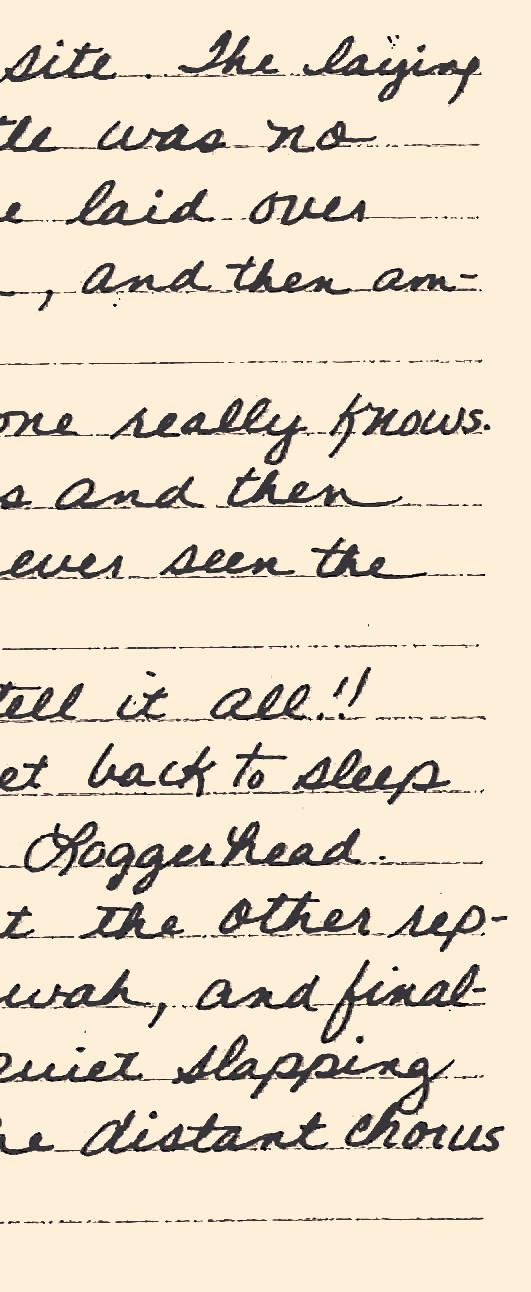 site. The laying
tle was no
e laid over
, and then am-
one really knows.
s and then
ever seen the
tell it all!!
et back to sleep
Loggerhead.
t the other rep-
wah, and final-
quiet slapping
he distant chorus